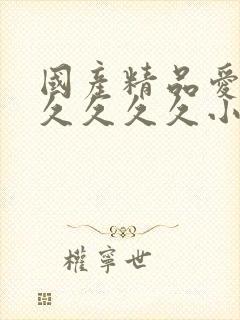 國産精品愛
久久久久小
權寧世